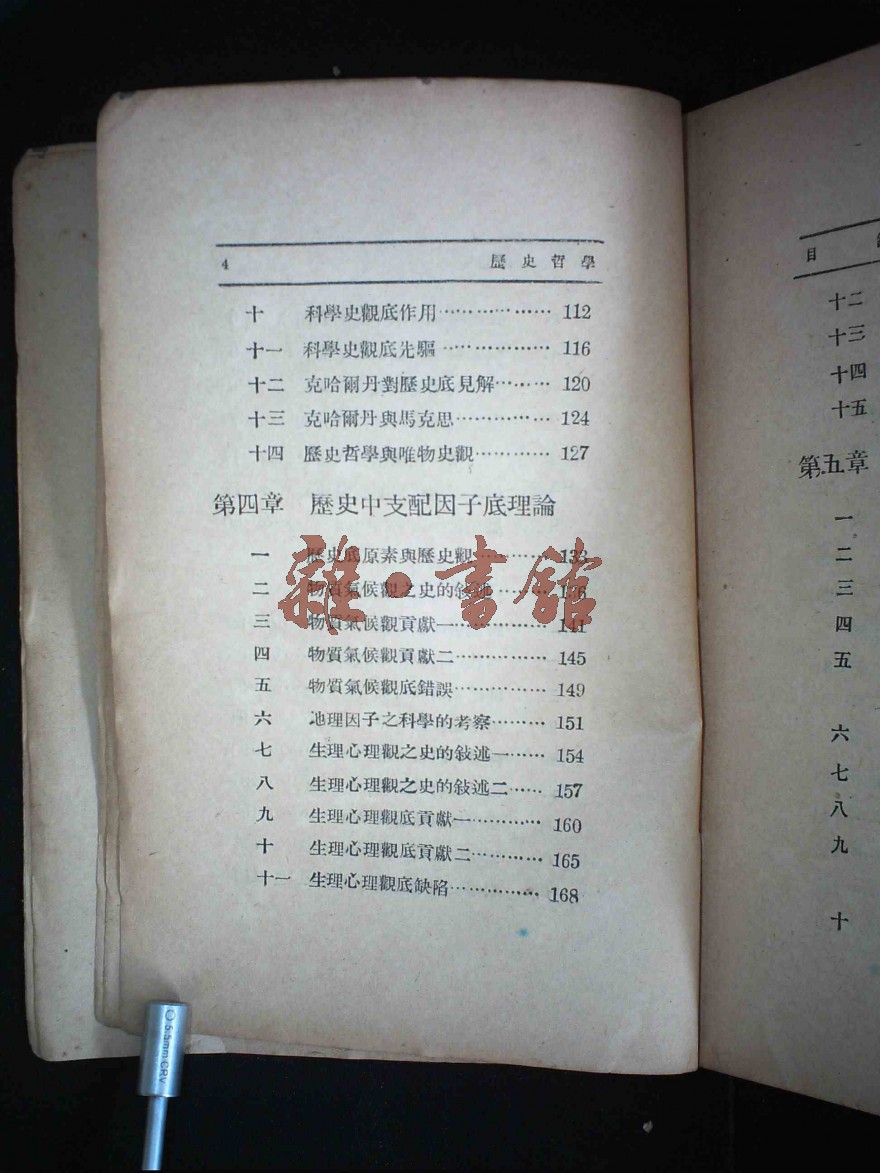 4 歷史哲學
十 科學史觀底作用……………… 112
十一 科學史觀底先驅……………… 116
十二 克哈爾丹對歷史底見解……… 120
十三 克哈爾丹與馬克思…………… 124
十四 歷史哲學與唯物史觀………… 127
第四章 歷史中支配因子底理論
一 歷史底原素與歷史觀………… 133
二 物質氣候觀之史的敍述……… 136
三 物質氣候觀貢獻一…………… 141
四 物質氣候觀貢獻二…………… 145
五 物質氣候觀底錯誤…………… 149
六 地理因子之科學的考察……… 151
七 生理心理觀之史的敍述一…… 154
八 生理心理觀之史的敍述二…… 157
九 生理心理觀底貢獻一………… 160
十 生理心理觀底貢獻二………… 165
十一 生理心理觀底缺陷…………… 168
雜·書館
5.5mm CRV
目
十二
十三
十四
十五
第五章
一
二
三
四
五
六
七
八
九
十